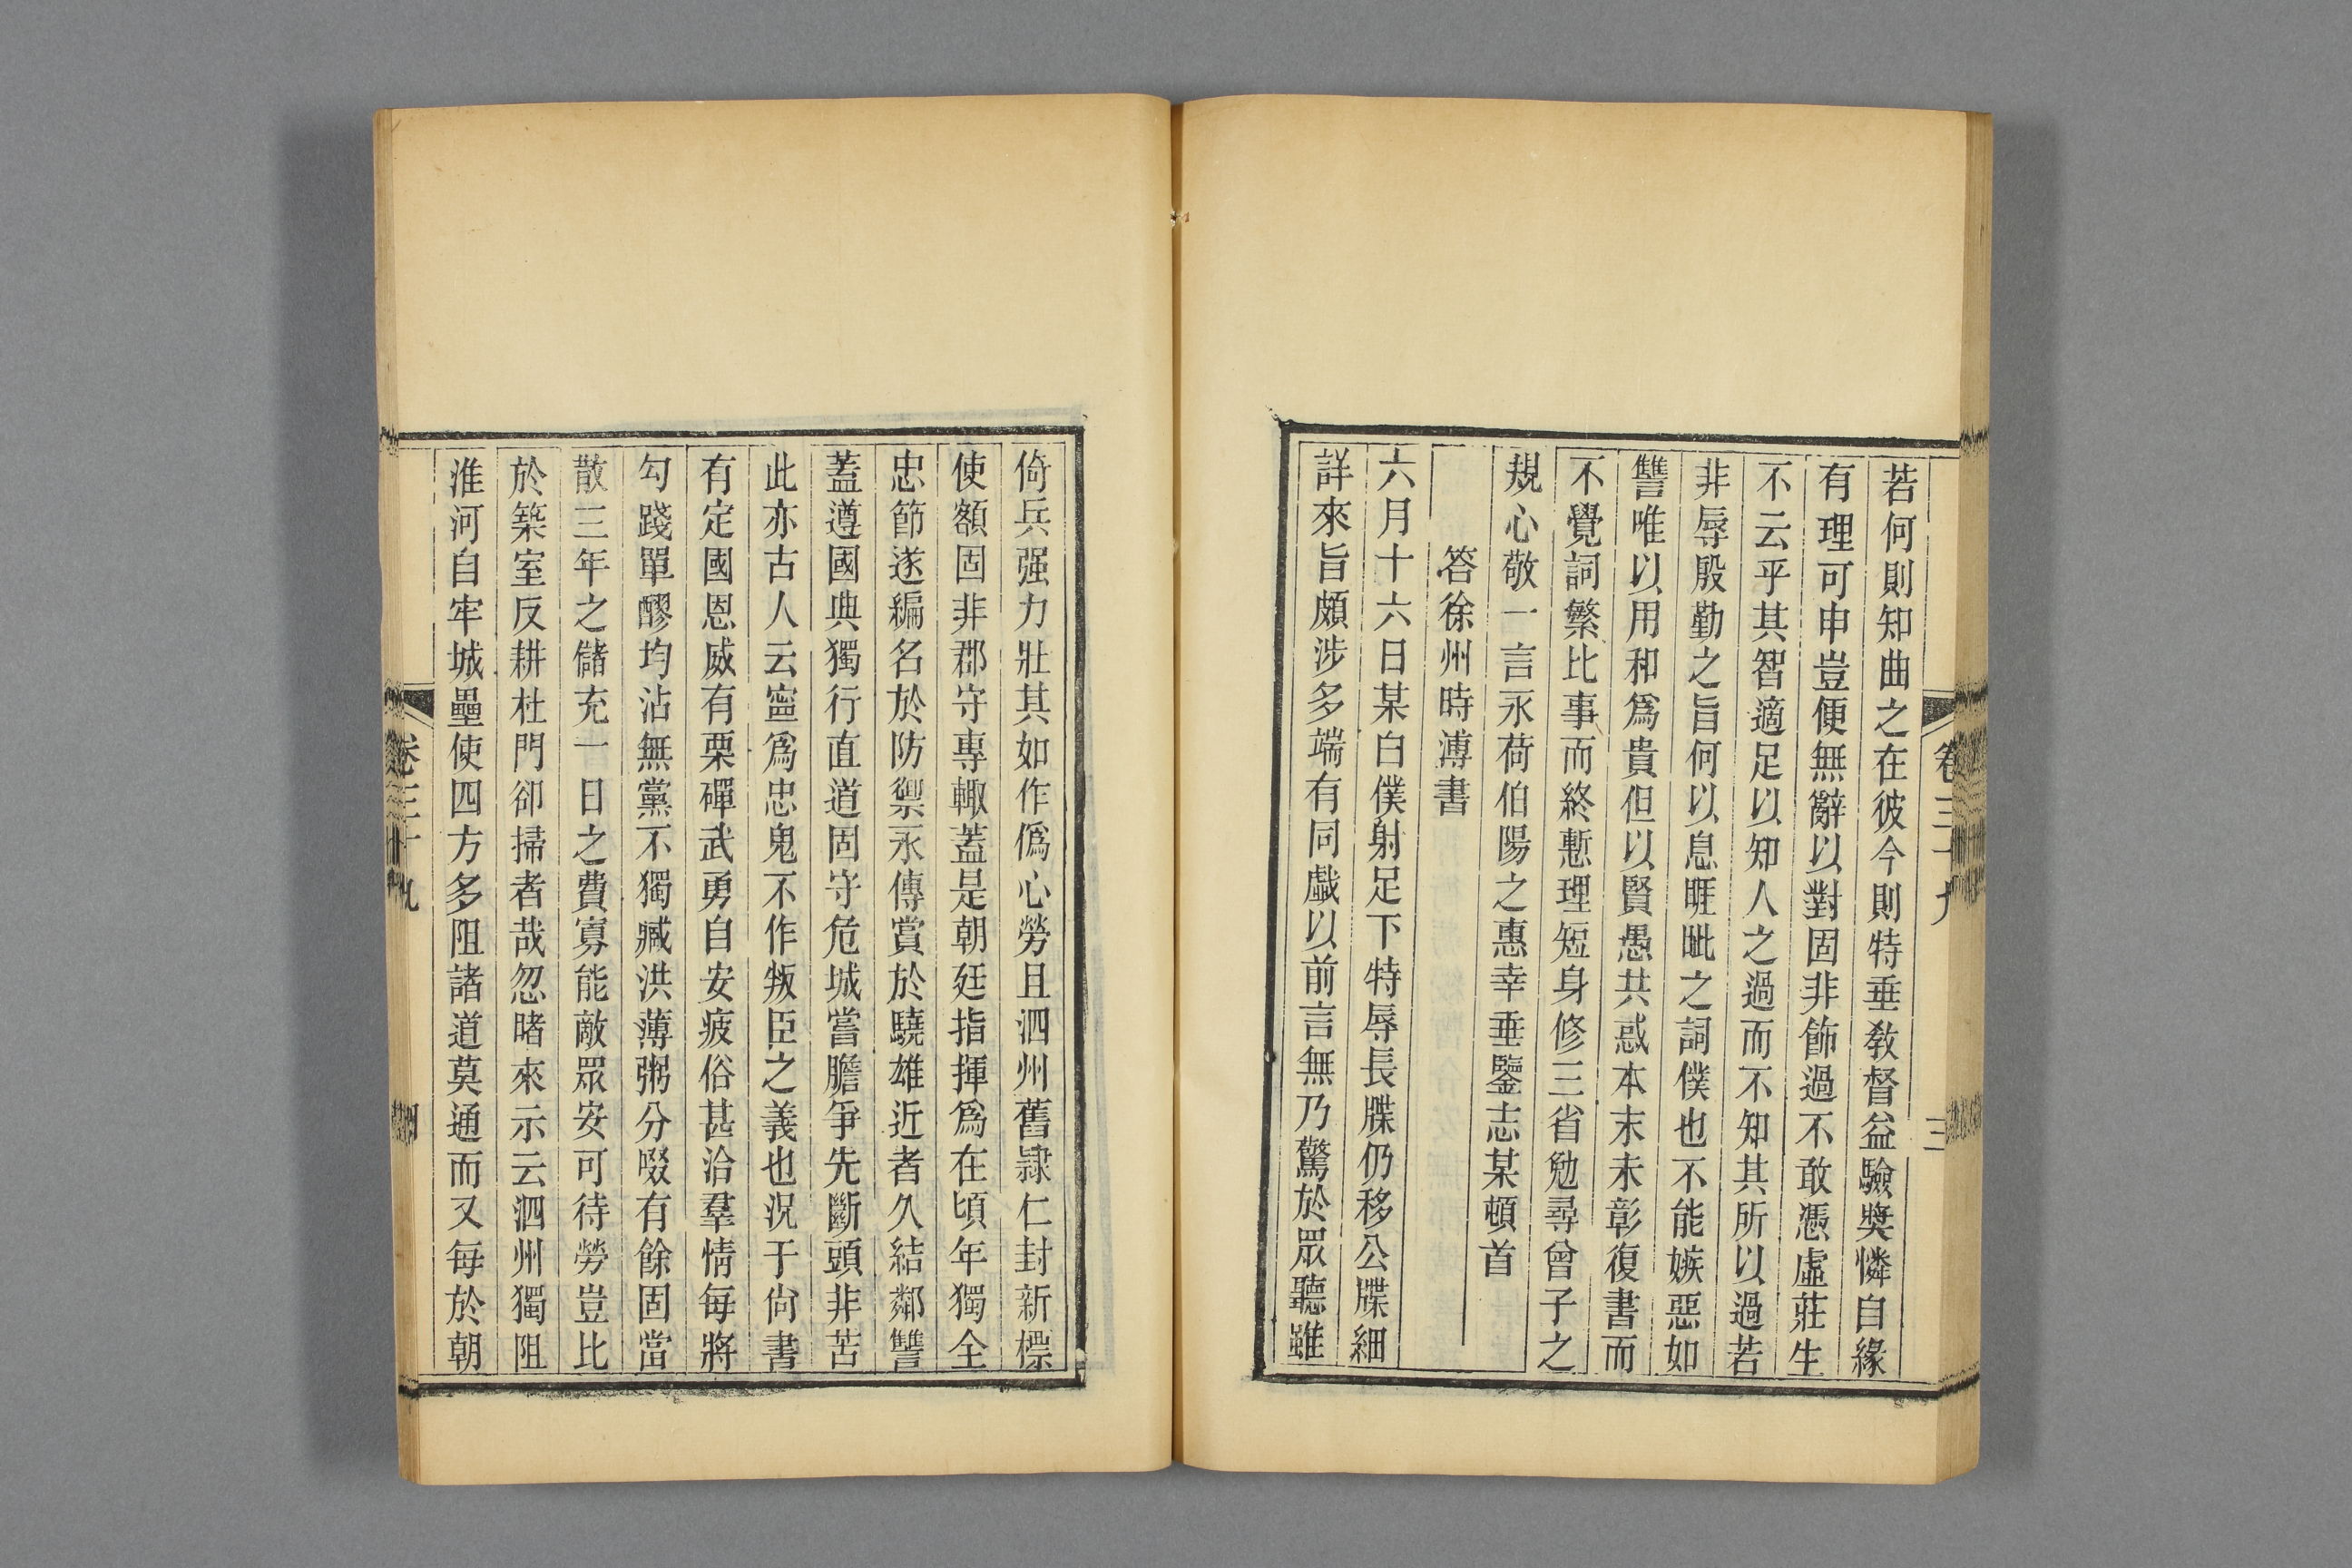 若何則知曲之在彼今則特垂敎督益驗奬憐自緣
有理可申豈便無辭以對固非飾過不敢憑虛莊生
不云乎其智適足以知人之過而不知其所以過若
非辱殷勤之旨何以息睚眦之詞僕也不能嫉惡如
讐唯以用和爲貴但以賢愚共惑本末未彰復書而
不覺詞繁比事而終慙理短身修三省勉尋曾子之
規心敬一言永荷伯陽之惠幸垂鑒志某頓首
答徐州時溥書
六月十六日某白僕射足下特辱長牒仍移公牒細
詳來旨頗涉多端有同戱以前言無乃驚於眾聽雖
卷三十九
三
倚兵强力壯其如作僞心勞且泗州舊隷仁封新標
使額固非郡守專輙蓋是朝廷指揮爲在頃年獨全
忠節遂編名於防禦永傳賞於驍雄近者久結鄰讐
蓋遵國典獨行直道固守危城嘗膽爭先斷頭非苦
此亦古人云寍爲忠鬼不作叛臣之義也況于尙書
有定國恩威有栗磾武勇自安疲俗甚洽羣情每將
勾踐單醪均沾無黨不獨臧洪薄粥分啜有餘固當
散三年之儲充一日之費寡能敵眾安可待勞豈比
於築室反耕杜門卻掃者哉忽睹來示云泗州獨阻
淮河自牢城壘使四方多阻諸道莫通而又每於朝
卷三十九